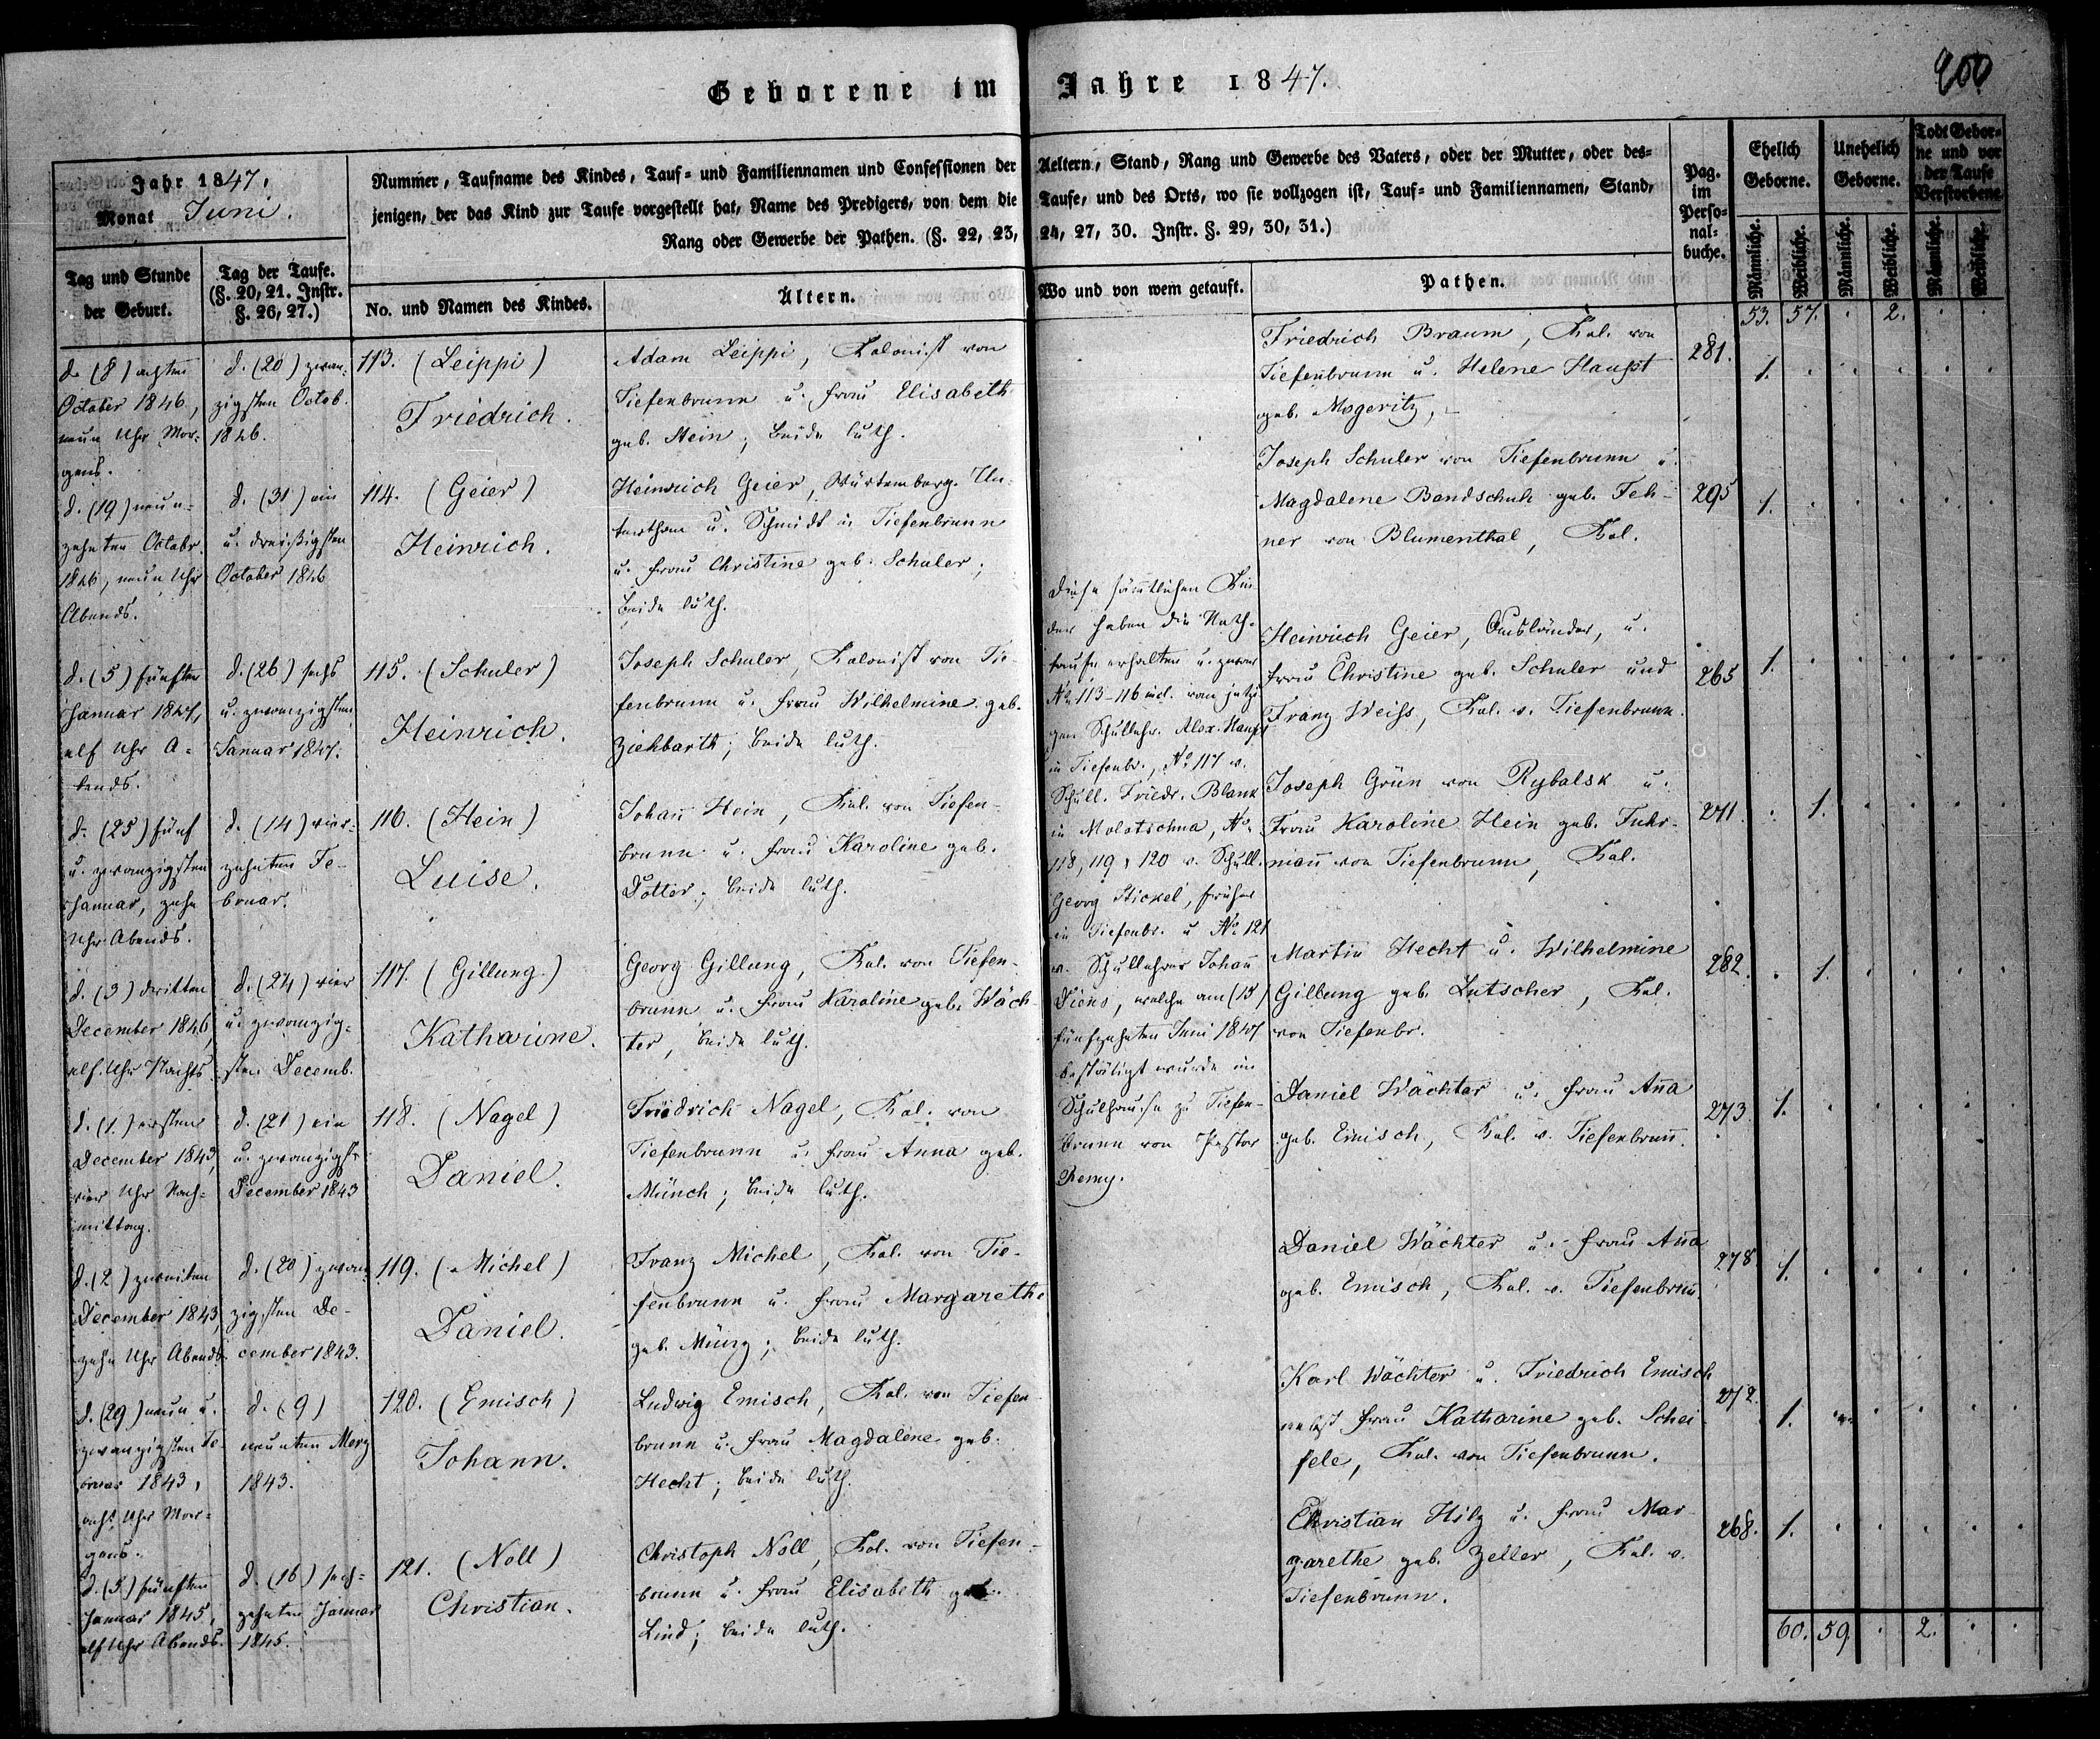 Geborene im Jahre 1847.
200
Jahr 1847.
Monat Juni.
Nummer, Taufname des Kindes, Tauf- und Familiennamen und Confessionen der Aeltern, Stand, Rang und Gewerbe des Vaters, oder der Mutter, oder des-
jenigen, der das Kind zur Taufe vorgestellt hat, Name des Predigers, von dem die Taufe, und des Orts, wo sie vollzogen ist, Tauf- und Familiennamen, Stand,
Rang oder Gewerbe der Pathen. (§. 22, 23, 24, 27, 30. Instr. §. 29, 30, 31.)
Pag.
im
Perso-
nal-
buche.
Ehelich
Geborne.
Unehelich
Geborne.
Todt Gebor-
ne und vor
der Taufe
Verstorbene.
Männliche.
Weibliche.
Männliche.
Weibliche.
Männliche.
Weibliche.
Tag und Stunde
der Geburt.
Tag der Taufe.
(§. 20, 21. Instr.
§. 26, 27.)
No. und Namen des Kindes.
Ältern.
Wo und von wem getauft.
Pathen.
53. 57. . 2. . .
d. (8) achten
October 1846,
neun Uhr Mor-
gens.
d. (20) zwan-
zigsten Octob.
1846.
113. (Leippi)
Friedrich.
Adam Leippi, Kolonist von
Tiefenbrunn u. Frau Elisabeth
geb. Stein; beide luth.
Friedrich Braum, Kol. von
Tiefenbrunn u. Helene Haupt
geb. Mogeritz, –
281.
1. . . . . .
d. (19) neun-
zehnten Octobr.
1846, neun Uhr
Abends.
d. (31) ein
u. dreißigsten
October 1846
114. (Geier)
Heinrich.
Heinrich Geier, Würtemberg. Un-
terthan u. Schmidt in Tiefenbrunn
u. Frau Christine geb. Schuler;
beide luth.
Joseph Schuler von Tiefenbrunn u.
Magdalene Bandschuh geb. Feh-
ner von Blumenthal, Kol.
295
1. . . . . .
d. (5) fünften
Januar 1847,
elf Uhr A-
bends.
d. (26) sechs
u. zwanzigsten
Januar 1847.
115. (Schuler)
Heinrich.
Joseph Schuler, Kolonist von Tie-
fenbrunn u. Frau Wilhelmine geb.
Ziehbarth; beide luth.
Heinrich Geier, Ausländer, u.
Frau Christine geb. Schuler und
Franz Weiss, Kol. v. Tiefenbrunn.
265
1. . . . . .
d. (25) fünf
u. zwanzigsten
Januar, zehn
Uhr Abends.
d. (14) vier-
zehnten Fe-
bruar.
116. (Hein)
Luise.
Johan̄ Hein, Kol. von Tiefen-
brunn u. Frau Karoline geb.
Dotter; beide luth.
Joseph Grün von Rybalsk u.
Frau Karoline Hein geb. Fuhr-
man̄ von Tiefenbrunn, Kol.
271.
. 1. . . . .
d. (3) dritten
December 1846,
elf Uhr Nachts
d. (24) vier
u. zwanzig-
sten Decemb.
117. (Gillung)
Katharine.
Georg Gillung, Kol. von Tiefen-
brunn u. Frau Karoline geb. Wäch-
ter, beide luth.
Martin Hecht u. Wilhelmine
Gillung geb. Lutscher, Kol.
von Tiefenbr.
282.
. 1. . . . .
d. (1.) ersten
December 1843,
vier Uhr Nach-
mittag.
d. (21) ein
u. zwanzigst.
December 1843
118. (Nagel)
Daniel.
Friedrich Nagel, Kol. von
Tiefenbrunn u. Frau Anna geb.
Münch; beide luth.
Daniel Wächter u. Frau An̄a
geb. Emisch, Kol. v. Tiefenbrun̄.
273.
1. . . . . .
d. (2) zweiten
December 1843,
zehn Uhr Abends.
d. (20) zwan-
zigsten De-
cember 1843.
119. (Michel)
Daniel.
Franz Michel, Kol. von Tie-
fenbrunn u. Frau Margarethe
geb. Münz; beide luth.
Daniel Wächter u. Frau An̄a
geb. Emisch, Kol. v. Tiefenbrun̄.
278
1. . . . . .
d. (29) neun u.
zwanzigsten Fe-
bruar 1843,
acht Uhr Mor-
gens.
d. (9)
neunten Merz
1843.
120. (Emisch)
Johann.
Ludwig Emisch, Kol. von Tiefen-
brunn u. Frau Magdalene geb.
Hecht; beide luth.
Karl Wächter u. Friedrich Emisch
nebst Frau Katharine geb. Schei-
fele, Kol. von Tiefenbrunn.
272.
1. . . . . .
d. (5) fünften
Januar 1845,
elf Uhr Abends.
d. (16) sech-
zehnten Januar
1845.
121. (Noll)
Christian.
Christoph Noll, Kol. von Tiefen-
brunn u. Frau Elisabeth geb.
Lind; beide luth.
Christian Hilz u. Frau Mar-
garethe geb. Zeller, Kol. v.
Tiefenbrunn.
268.
1. . . . . .
Diese sämtlichen Kin-
der haben die Noth-
taufe erhalten u. zwar
No 113–116 incl. vom jetzi-
gen Schullehr. Alex. Haupt
in Tiefenbr., No 117 v.
Schull. Friedr. Blank
in Molotschna, No
118, 119, 120 v. Schull.
Georg Stickel, früher
in Tiefenbr. u No 121
v. Schullehrer Johan̄
Diens, welche am (15)
fünfzehnten Juni 1847
bestätigt wurde im
Schulhause zu Tiefen-
brunn von Pastor
Remy.
60. 59. . 2. . .